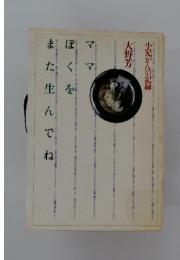 小児がんの記録
大野芳
ママ
ぼくを
また生んでね